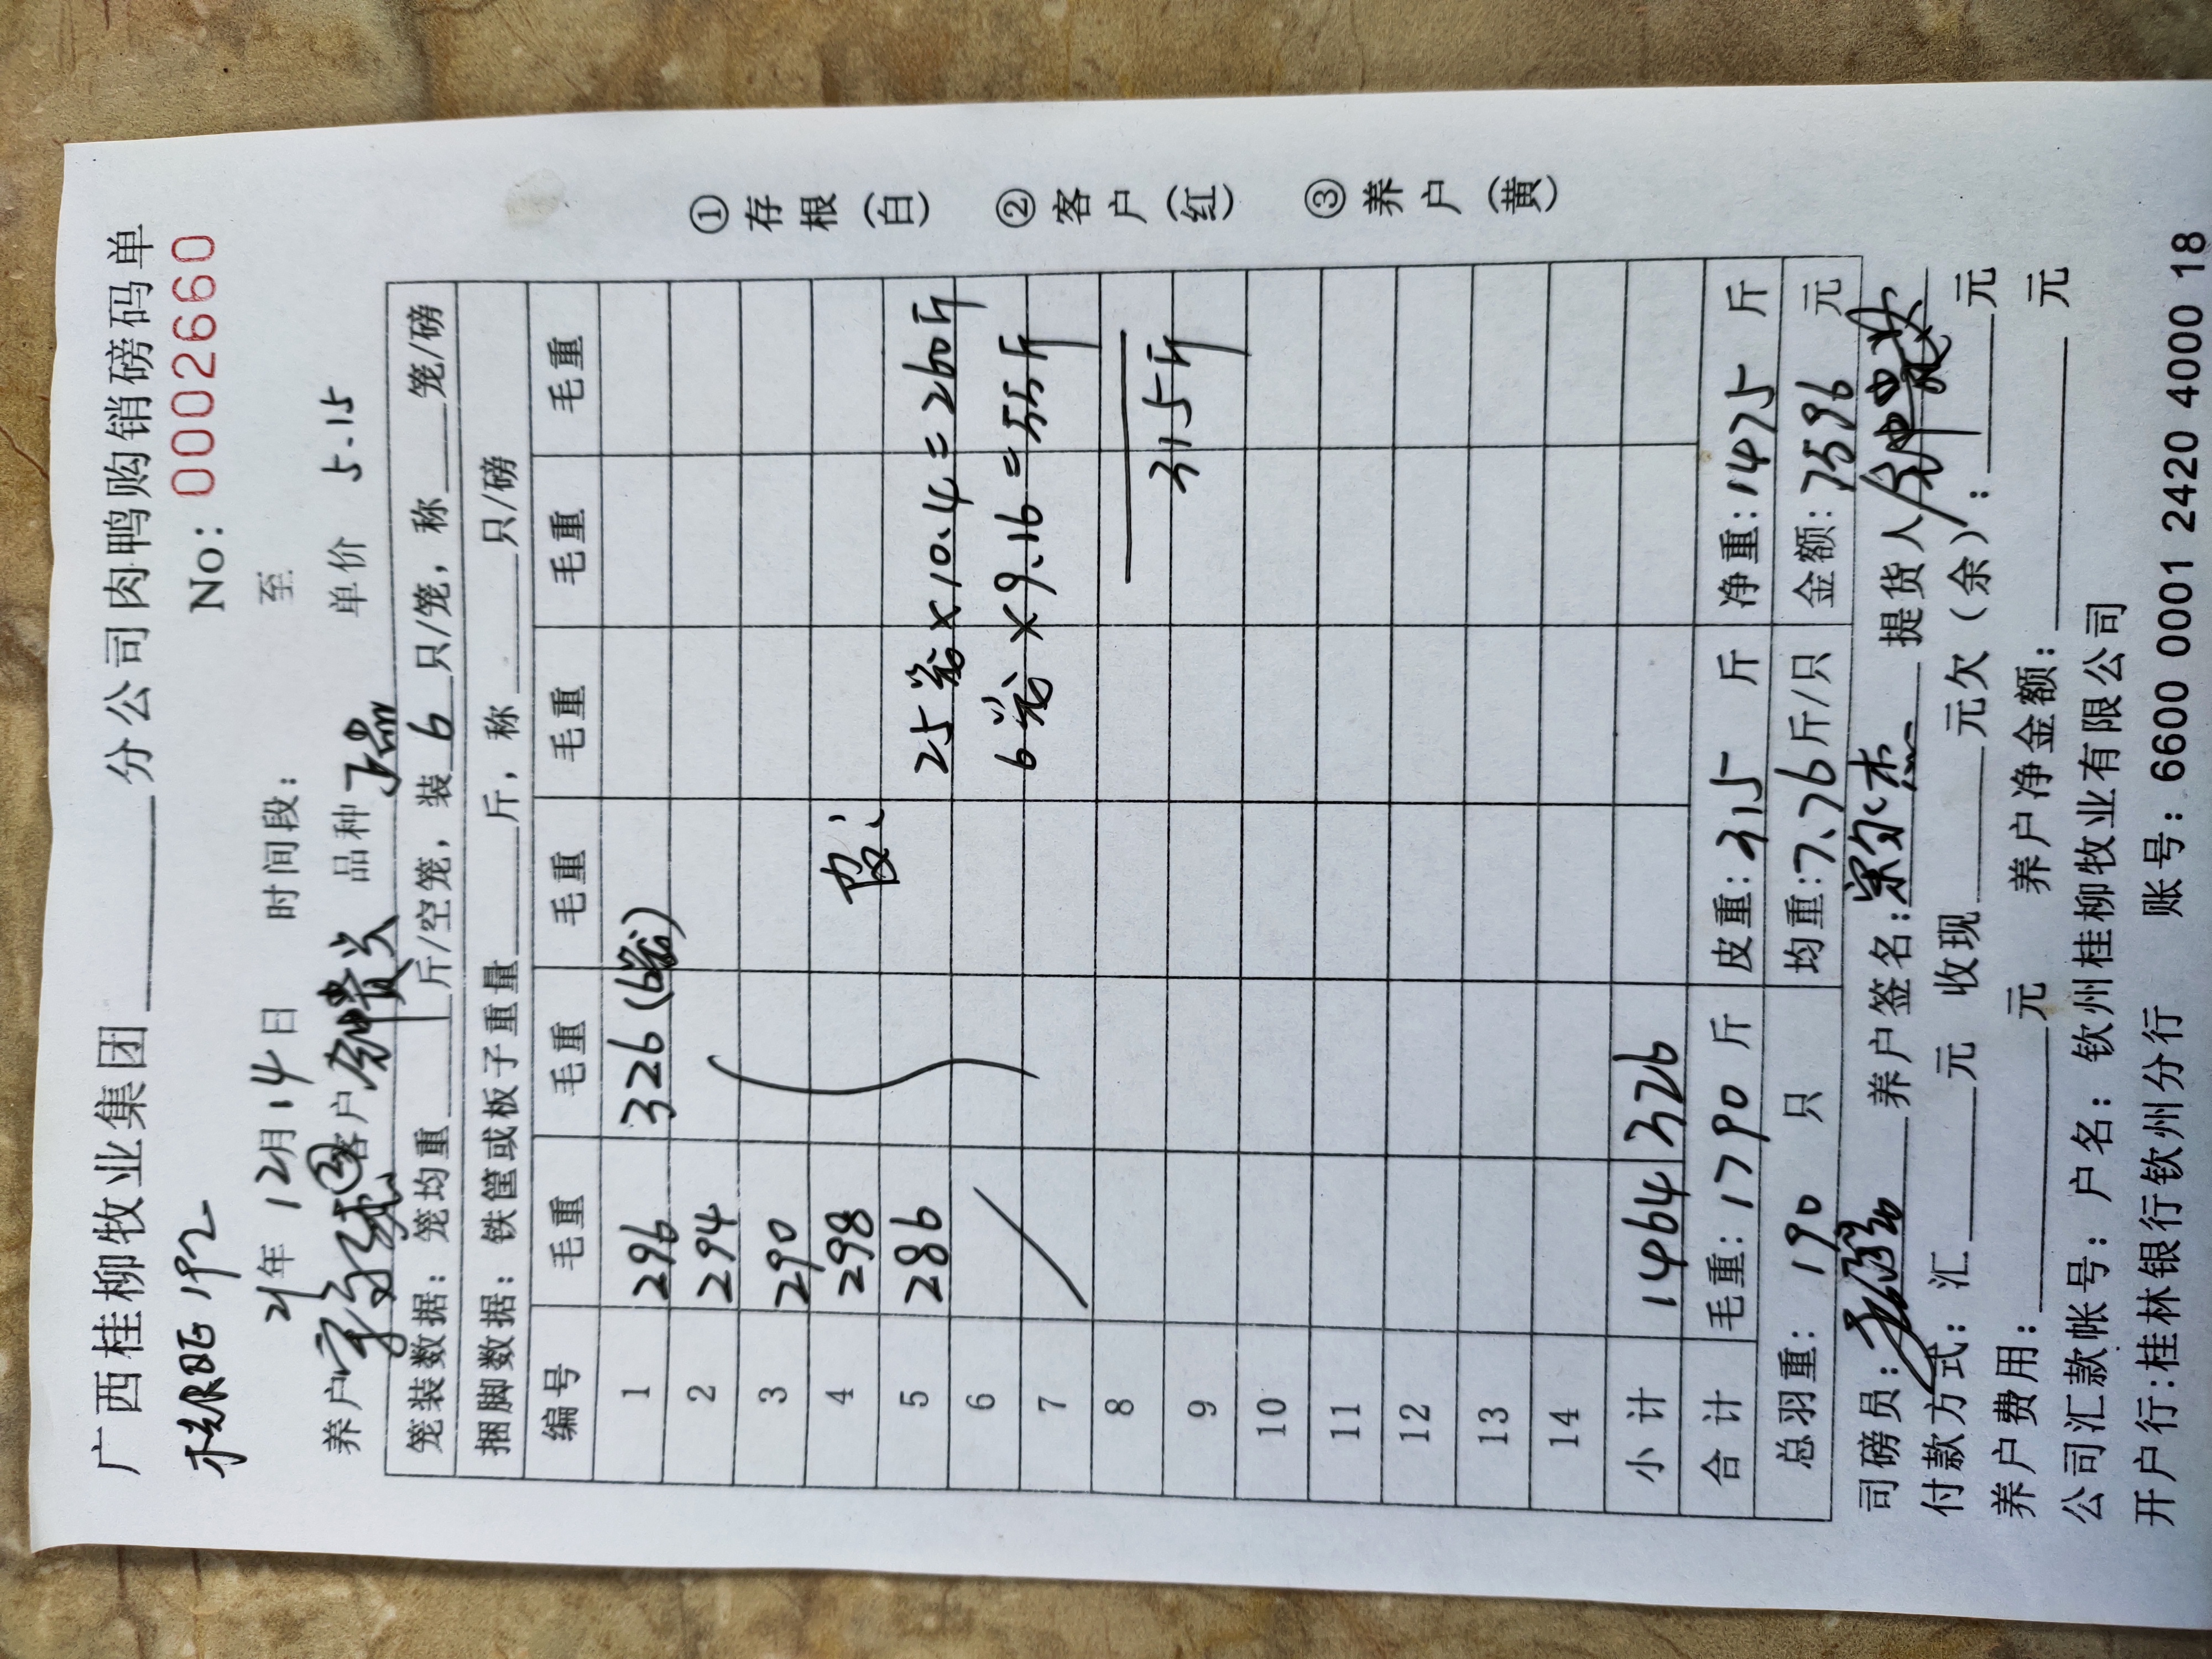 广西桂柳牧业集团______分公司肉鸭购销磅码单
192
No: 0002660
21年 12月14日 时间段: 至
养户 ② 客户 钟贵 品种 瑞 单价 5.15
笼装数据: 笼均重____斤/空笼, 装 6 只/笼, 称____笼/磅
捆脚数据: 铁筐或板子重量____斤, 称____只/磅
编号 毛重 毛重 毛重 毛重 毛重 毛重
1 296 326(6笼)
2 294
3 290
4 298
5 286 25笼×10.4=260斤
6 6笼×9.16=55斤
7
8 315斤
9
10
11
12
13
14
小计 1464 326
合计 毛重: 1790 斤 皮重: 315 斤 净重: 1475 斤
总羽重: 190 只 均重: 7.76 斤/只 金额: 7596 元
司磅员: 养户签名: 提货人
付款方式: 汇____元 收现____元欠(余): ____元
养户费用: ____元 养户净金额: ____元
公司汇款帐号: 户名: 钦州桂柳牧业有限公司
开户行:桂林银行钦州分行 账号: 6600 0001 2420 4000 18
①存根(白) ②客户(红) ③养户(黄)